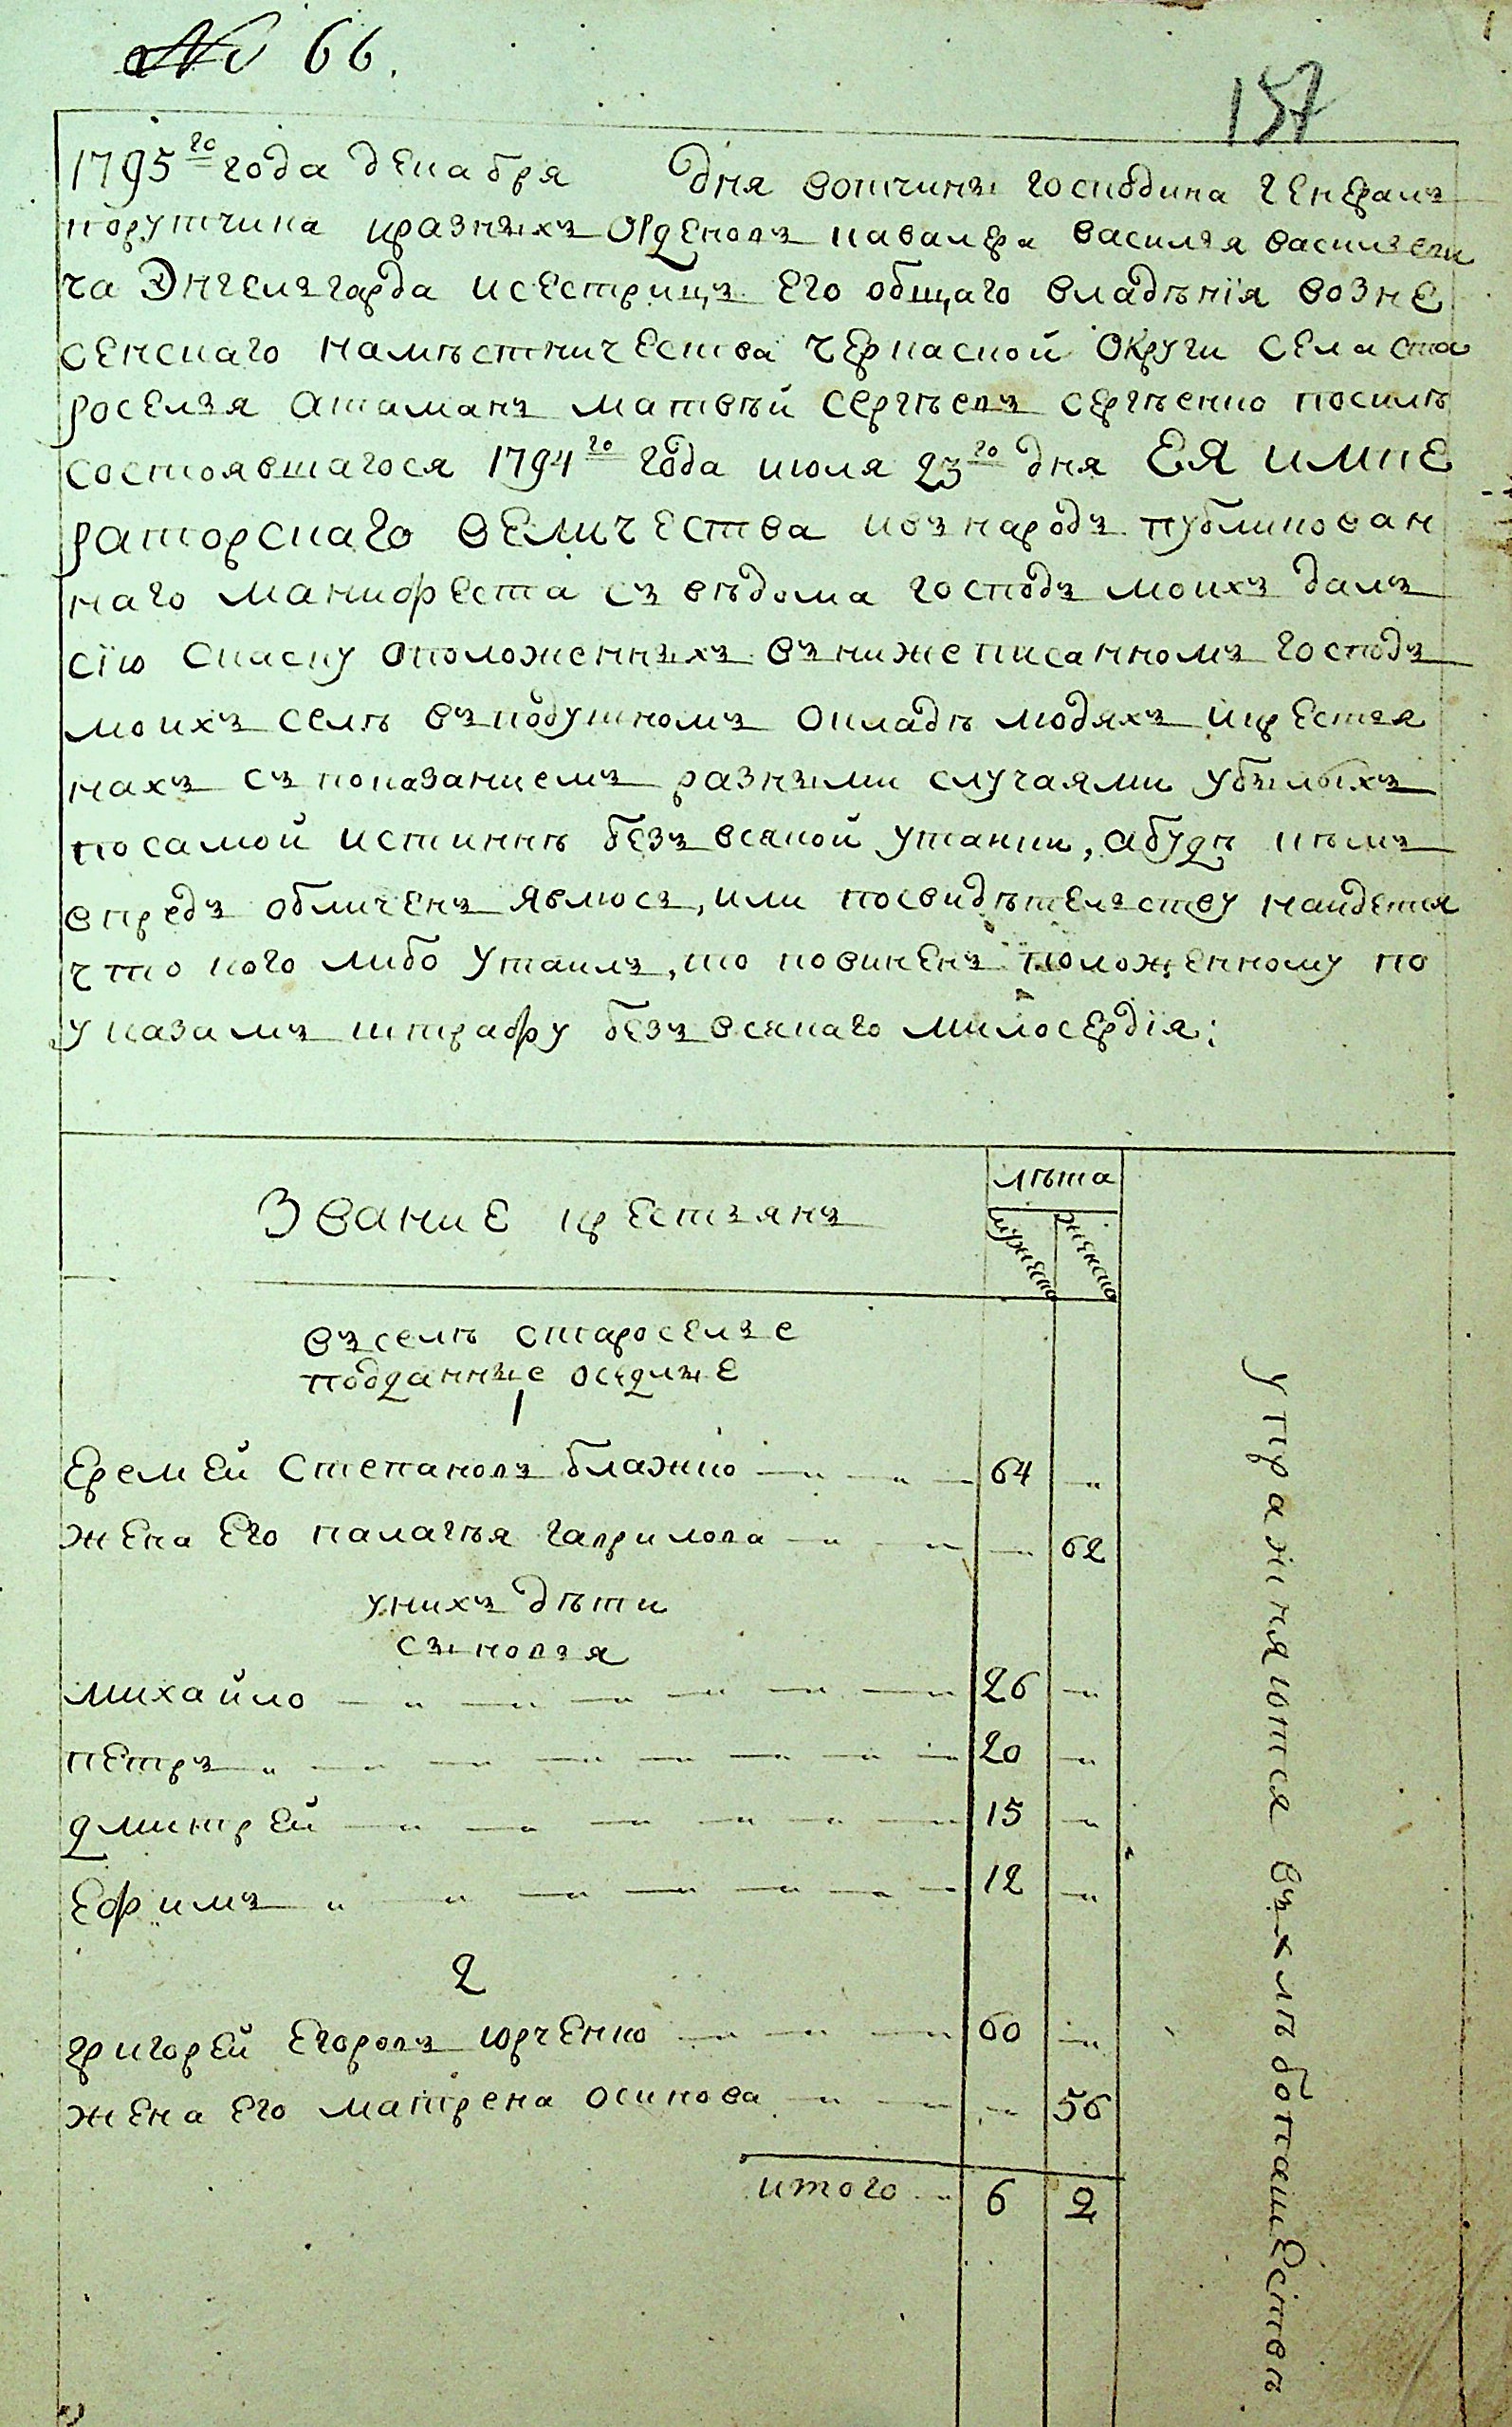 № 66.
157
1795го года декабря дня вотчины господина генералъ
порутчика иразныхъ орденовъ кавалера василья васильеви
ча Энгельгарда исестрицъ его общаго владѣнія возне
сенскаго намѣстничества черкаской округи села ста
роселья атаманъ матвѣй сергѣевъ сергѣенко посилѣ
состоявшагося 1794го года июля 23го дня ЕЯ импе
раторскаго величества ивънародъ публикован
наго манифеста съ вѣдома господъ моихъ далъ
сію скаску оположенныхъ вънижеписанномъ господъ
моихъ селѣ въподушномъ окладѣ людяхъ икрестья
нахъ съ показаниемъ разными случаями убылыхъ
посамой истиннѣ безъ всякой утайки, абудѣ кѣмъ
впредь обличенъ явлюсь, или посвидѣтельству найдется
что кого либо утаилъ, то повиненъ положенному по
указамъ штрафу безъ всякаго милосердія:
Звание крестьянъ
лѣта
мужеска
женска
въселѣ староселье
подданные оседлые
1
Еремей Степановъ блажко 64
жена Его палагѣя гаврилова 62
унихъ дѣти
сыновья
михайло 26
петръ 20
дмитрей 15
Ефимъ 12
2
григорей Егоровъ юрченко 60
жена его матрена осипова 56
итого 6 2
упражняются въхлѣбопашествѣ